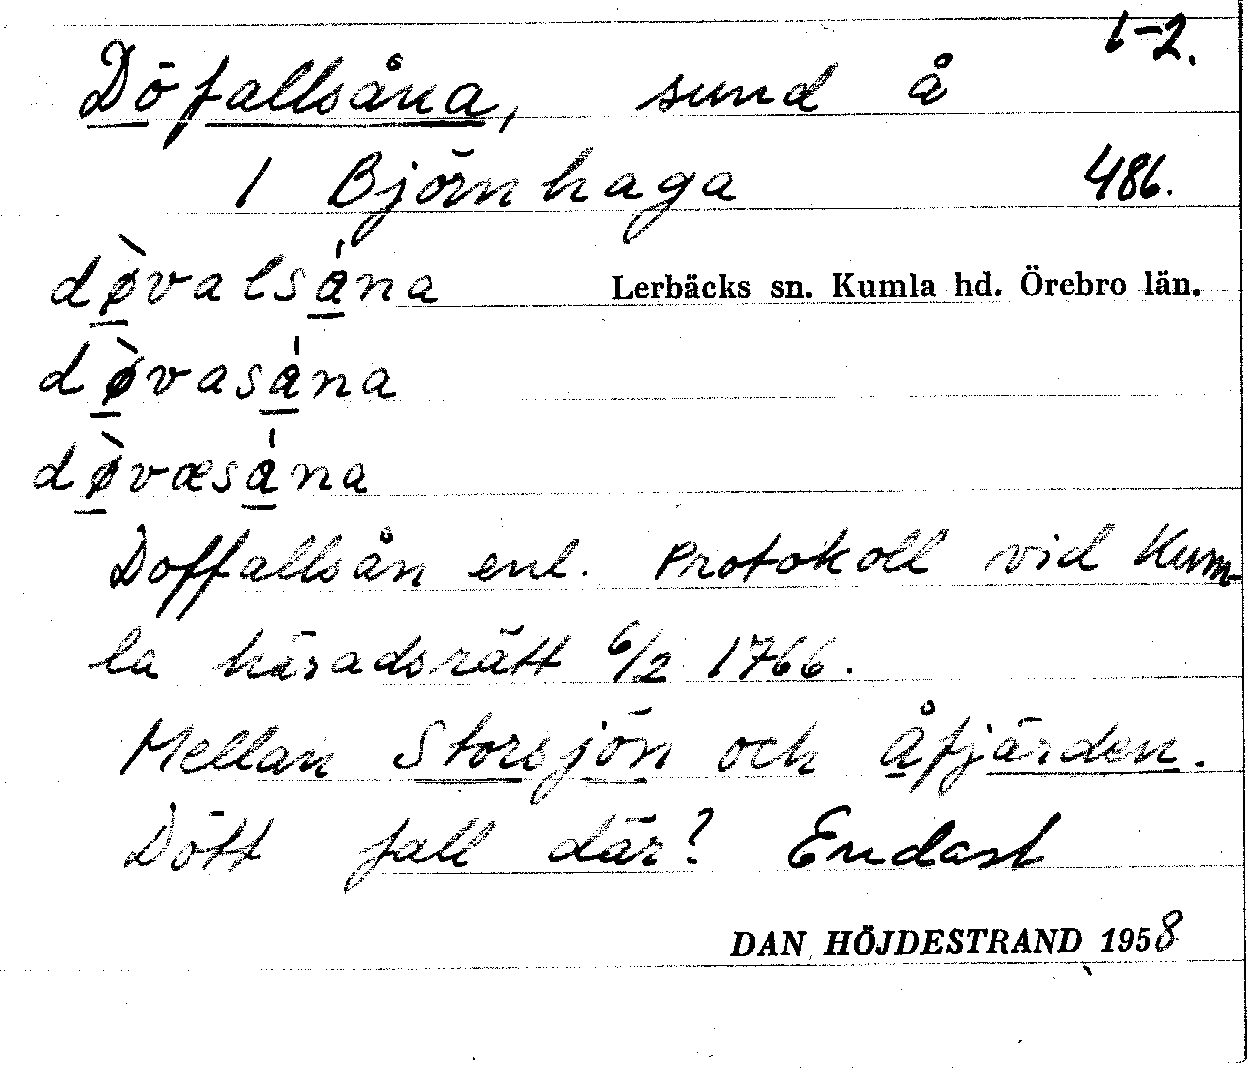 1-2.
Döfallsåna, sund å
1 Björnhaga 486.
dø̀valsána Lerbäcks sn. Kumla hd. Örebro län.
dø̀vasána
dø̀væsána
Doffallsån enl. Protokoll vid Kum-
la häradsrätt 6/2 1766.
Mellan Storsjön och Åfjärden.
Dött fall där? Endast
DAN HÖJDESTRAND 1958